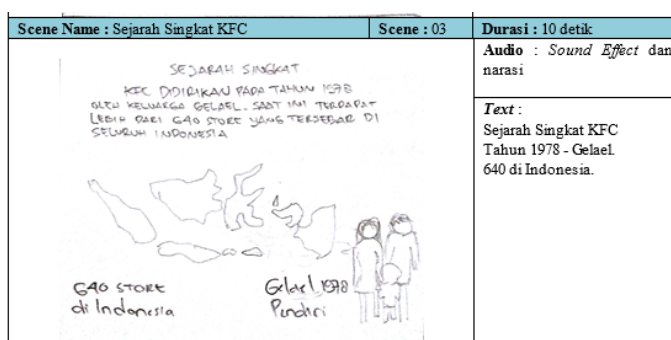 Scene Name : Sejarah Singkat KFC
Scene : 03
Durasi : 10 detik
SEJARAH SINGKAT
KFC DIDIRIKAN PADA TAHUN 1978
OLEH KELUARGA GELAEL. SAAT INI TERDAPAT
LEBIH DARI 640 STORE YANG TERSEBAR DI
SELURUH INDONESIA
640 STORE
di Indonesia
Gelael 1978
Pendiri
Audio : Sound Effect dan
narasi
Text :
Sejarah Singkat KFC
Tahun 1978 - Gelael.
640 di Indonesia.